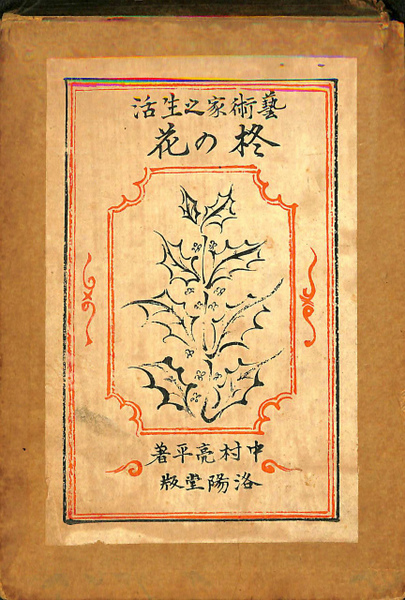 藝術家之生活
柊の花
中村亮平著
洛陽堂版